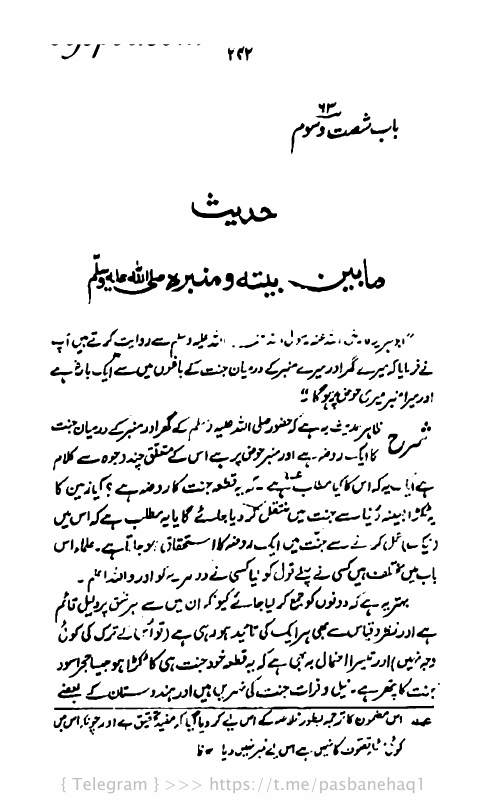 ۲۴۲
۶۳
باب شصت و سوم
حدیث
مابین بیتہ و منبرہ صلی اللہ علیہ وسلم
روایت کرتے ہیں آپ
نے فرمایا کہ میرے گھر اور میرے منبر کے درمیان جنت کے باغوں میں سے ایک باغ ہے
اور میرا منبر میری حوض پر ہو گا"
شرح ظاہر حدیث یہ ہے کہ حضور صلی اللہ علیہ وسلم کے گھر اور منبر کے درمیان جنت
کا ایک روضہ ہے اور منبر حوض پر ہے اس کے متعلق چند وجوہ سے کلام
ہے اس کا کیا مطلب ہے کہ یہ قطعہ جنت کا روضہ ہے؟ کیا زمین کا
یہ ٹکڑا بعینہ دنیا سے جنت میں منتقل کر دیا جائے گا یا یہ مطلب ہے کہ اس میں
عمل کرنے سے جنت میں ایک روضہ کا استحقاق ہو جاتا ہے۔ علماء اس
باب میں مختلف ہیں کسی نے پہلے قول کو لیا کسی نے دوسرے کو اور واللہ اعلم۔
بہتر یہ ہے کہ دونوں کو جمع کر لیا جائے کیونکہ ان میں سے ہر شق پر دلیل قائم
ہے اور نظر و قیاس سے بھی ہر ایک کی تائید ہو رہی ہے ترک کی کوئی
وجہ نہیں) اور تیسرا احتمال یہ بھی ہے کہ یہ قطعہ خود جنت ہی کا ٹکڑا ہو جیسا حجر اسود
جنت کا پتھر ہے۔ نیل و فرات جنت کی نہریں ہیں اور ہندوستان کے بعضے
عہ اس مضمون کا ترجمہ اس لیے کر دیا گیا کہ دقیق ہے اور اس میں
اس لیے نمبر نہیں دیا
{ Telegram } >>> https://t.me/pasbanehaq1